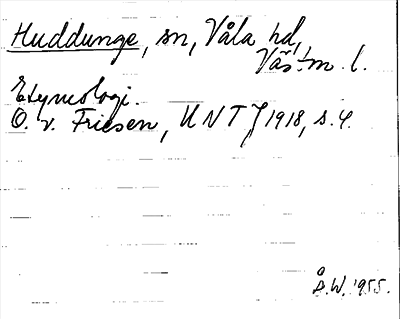 Huddunge, sn, Våla hd,
Västm. l.
Etymologi.
O. v. Friesen, UNT J 1918, s. 4.
Å.W. 1955.